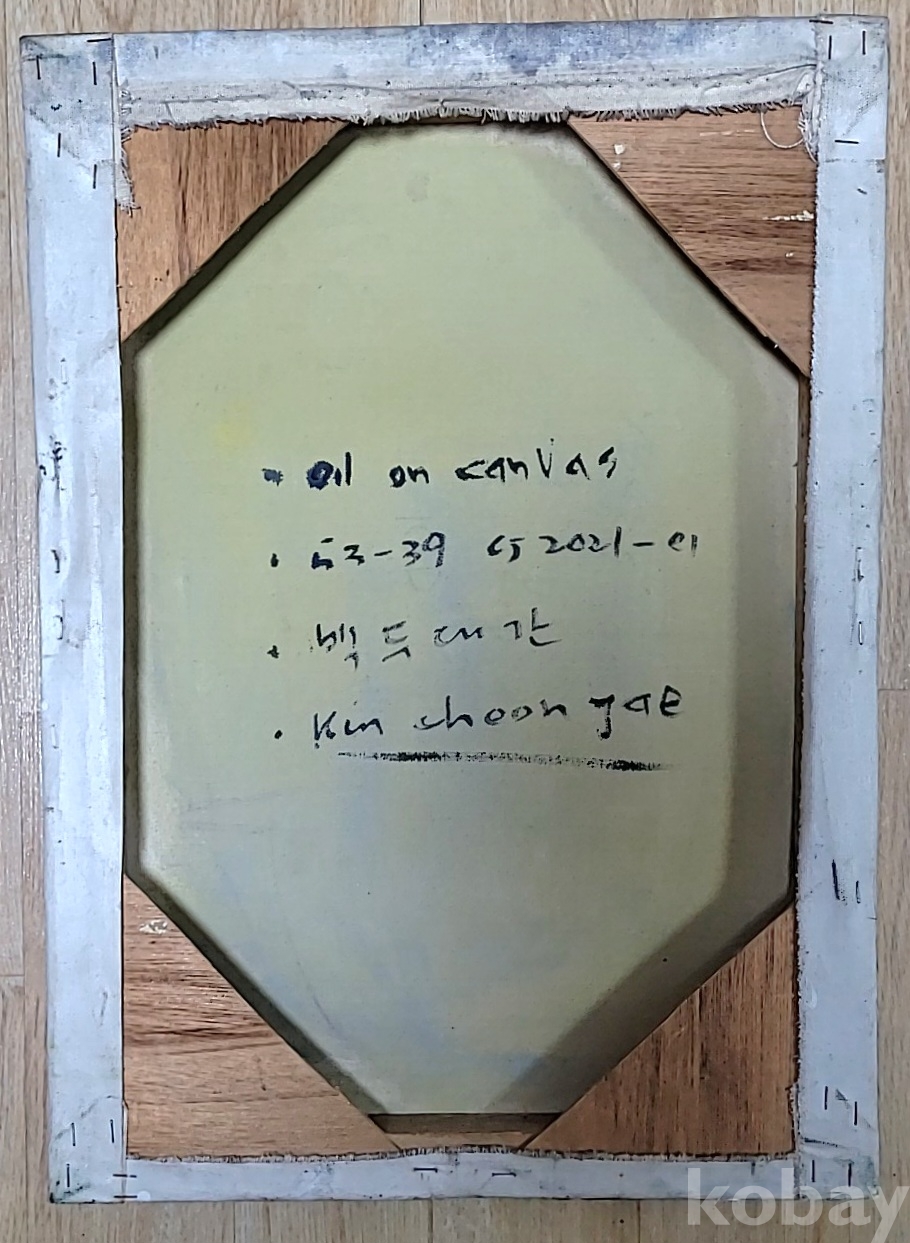 · oil on canvas
· 53-39 cs 2021-01
· 백두대간
· Kim choon jae
kobay